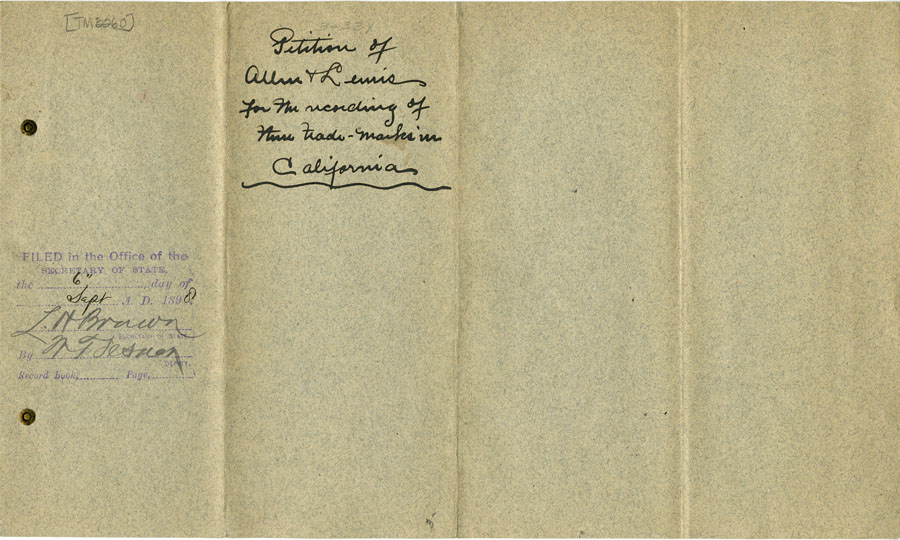 [TM2260]
Petition of
Allen & Lewis
for the recording of
their trade-marks in
California
FILED in the Office of the
SECRETARY OF STATE,
the 6" day of
Sept A. D. 1898
L. H. Brown
SECRETARY OF STATE
By
DEPUTY.
Record book, Page,